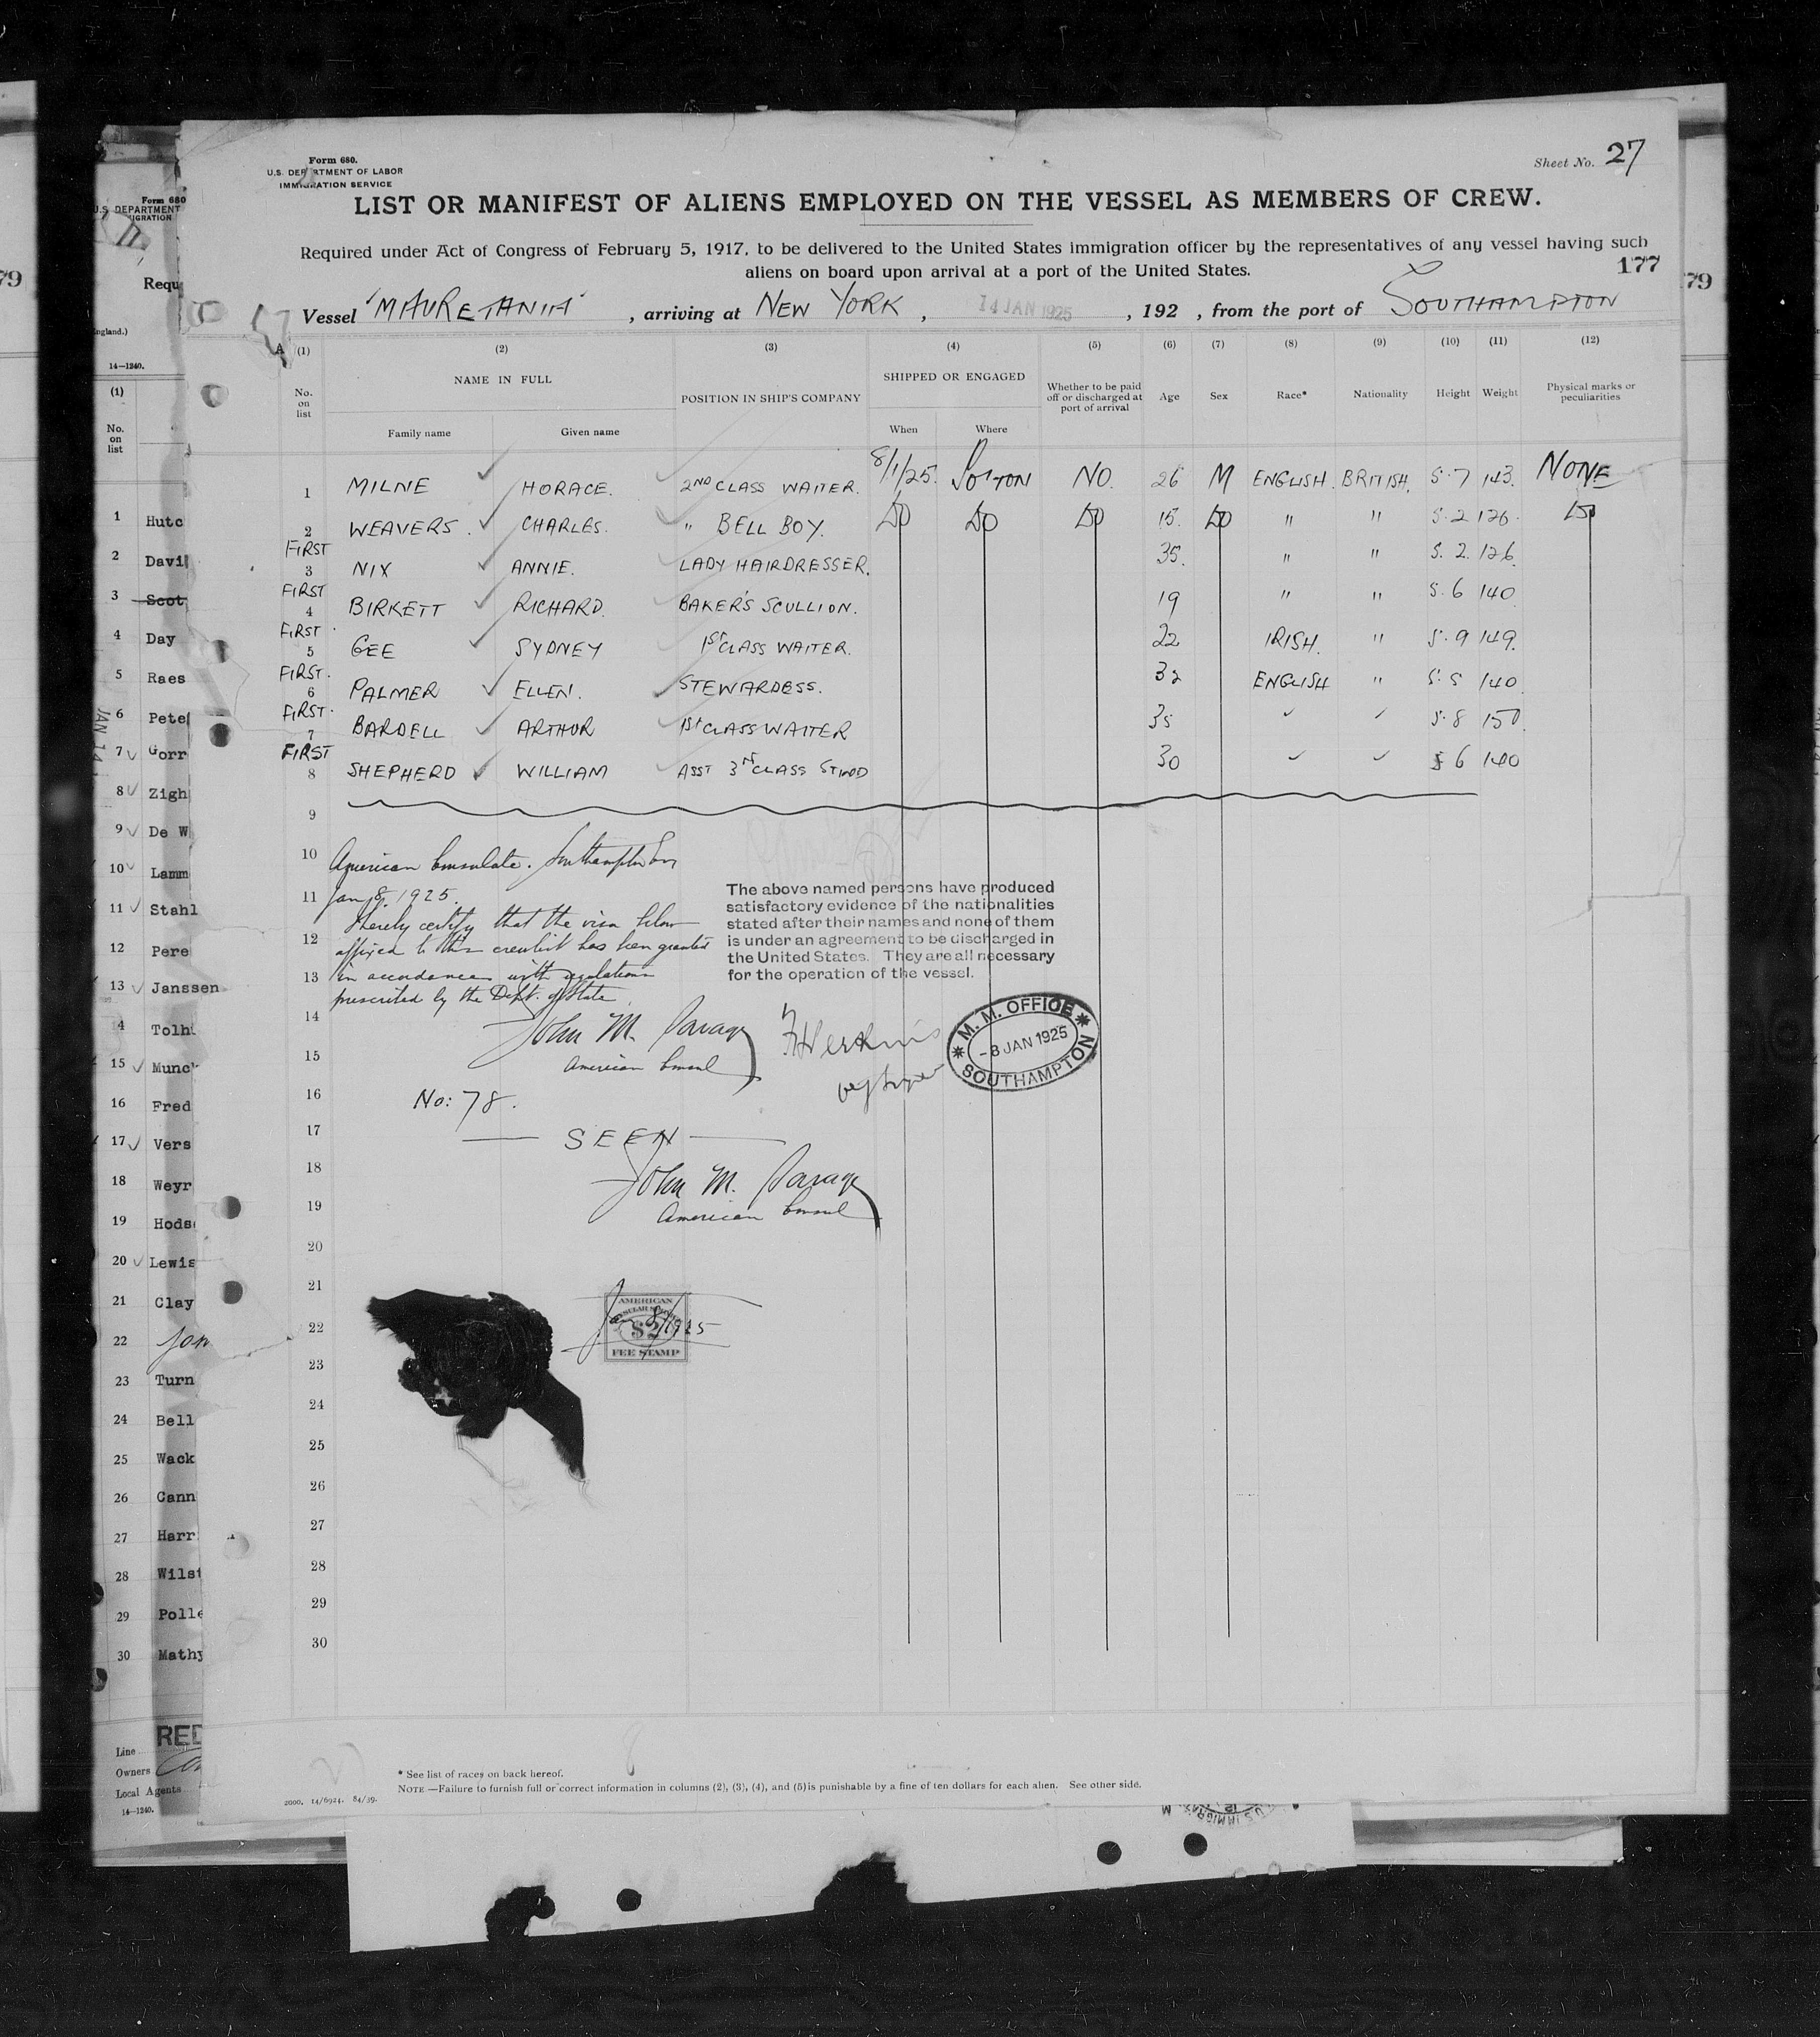 Form 680.
U.S. DEPARTMENT OF LABOR
IMMIGRATION SERVICE
Sheet No. 27
LIST OR MANIFEST OF ALIENS EMPLOYED ON THE VESSEL AS MEMBERS OF CREW.
Required under Act of Congress of February 5, 1917, to be delivered to the United States immigration officer by the representatives of any vessel having such
aliens on board upon arrival at a port of the United States.
177
Vessel 'MAURETANIA', arriving at NEW YORK, 14 JAN 1925, 192 , from the port of SOUTHAMPTON
(1) (2) (3) (4) (5) (6) (7) (8) (9) (10) (11) (12)
No. on list NAME IN FULL POSITION IN SHIP'S COMPANY SHIPPED OR ENGAGED Whether to be paid off or discharged at port of arrival Age Sex Race* Nationality Height Weight Physical marks or peculiarities
Family name Given name When Where
1 MILNE HORACE. 2ND CLASS WAITER. 8/1/25. SO'TON NO. 26 M ENGLISH. BRITISH. 5.7 143. NONE
2 WEAVERS. CHARLES. " BELL BOY. DO DO DO 15. DO " " 5.2 126. DO
FIRST 3 NIX ANNIE. LADY HAIRDRESSER. 35. " " 5.2 126.
FIRST 4 BIRKETT RICHARD. BAKER'S SCULLION. 19 " " 5.6 140
FIRST 5 GEE SYDNEY 1ST CLASS WAITER. 22 IRISH. " 5.9 149.
FIRST. 6 PALMER ELLEN. STEWARDESS. 32 ENGLISH " 5.5 140.
FIRST. 7 BARDELL ARTHUR 1ST CLASS WAITER 35 5.8 150.
FIRST 8 SHEPHERD WILLIAM ASST 3RD CLASS STWD 30 5 6 140
9
10 American Consulate. Southampton Eng
11 Jan 8, 1925.
I hereby certify that the visa below
12 affixed to this crewlist has been granted
13 in accordance with regulations
prescribed by the Dept. of State
The above named persons have produced
satisfactory evidence of the nationalities
stated after their names and none of them
is under an agreement to be discharged in
the United States. They are all necessary
for the operation of the vessel.
14 John M. Savage
15 American Consul
M. M. OFFICE
-8 JAN 1925
SOUTHAMPTON
16 No: 78.
17 SEEN
18 John M. Savage
19 American Consul
20
21
AMERICAN
CONSULAR SERVICE
$2
FEE STAMP
Jan 8/1925
22
23
24
25
26
27
28
29
30
* See list of races on back hereof.
NOTE —Failure to furnish full or correct information in columns (2), (3), (4), and (5) is punishable by a fine of ten dollars for each alien. See other side.
2000. 14/6924. 84/39.
Form 680
U.S. DEPARTMENT
Requ
14—1240.
(1)
No.
on
list
1 Hutc
2 Davi
3 Scot
4 Day
5 Raes
6 Pete
7 Gorr
8 Zigh
9 De W
10 Lamm
11 Stahl
12 Pere
13 Janssen
14 Tolh
15 Munc
16 Fred
17 Vers
18 Weyr
19 Hods
20 Lewis
21 Clay
22 Jon
23 Turn
24 Bell
25 Wack
26 Cann
27 Harr
28 Wils
29 Polle
30 Mathy
JAN 14
RED
Line
Owners
Local Agents
14—1240.
79
79